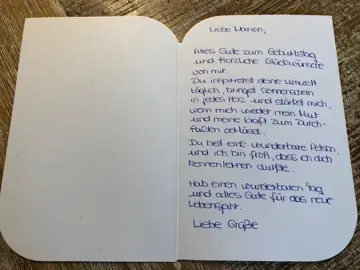 Liebe Marion,
Alles Gute zum Geburtstag
und herzliche Glückwünsche
von mir.
Du inspirierst deine Umwelt
täglich, bringst Sonnenschein
in jedes Herz und stärkst mich,
wenn mich wieder mein Mut
und meine Kraft zum Durch-
halten verlässt.
Du bist eine wunderbare Person,
und ich bin froh, dass ich dich
kennenlernen durfte.
Hab einen wunderbaren Tag
und alles Gute für das neue
Lebensjahr.
Liebe Grüße